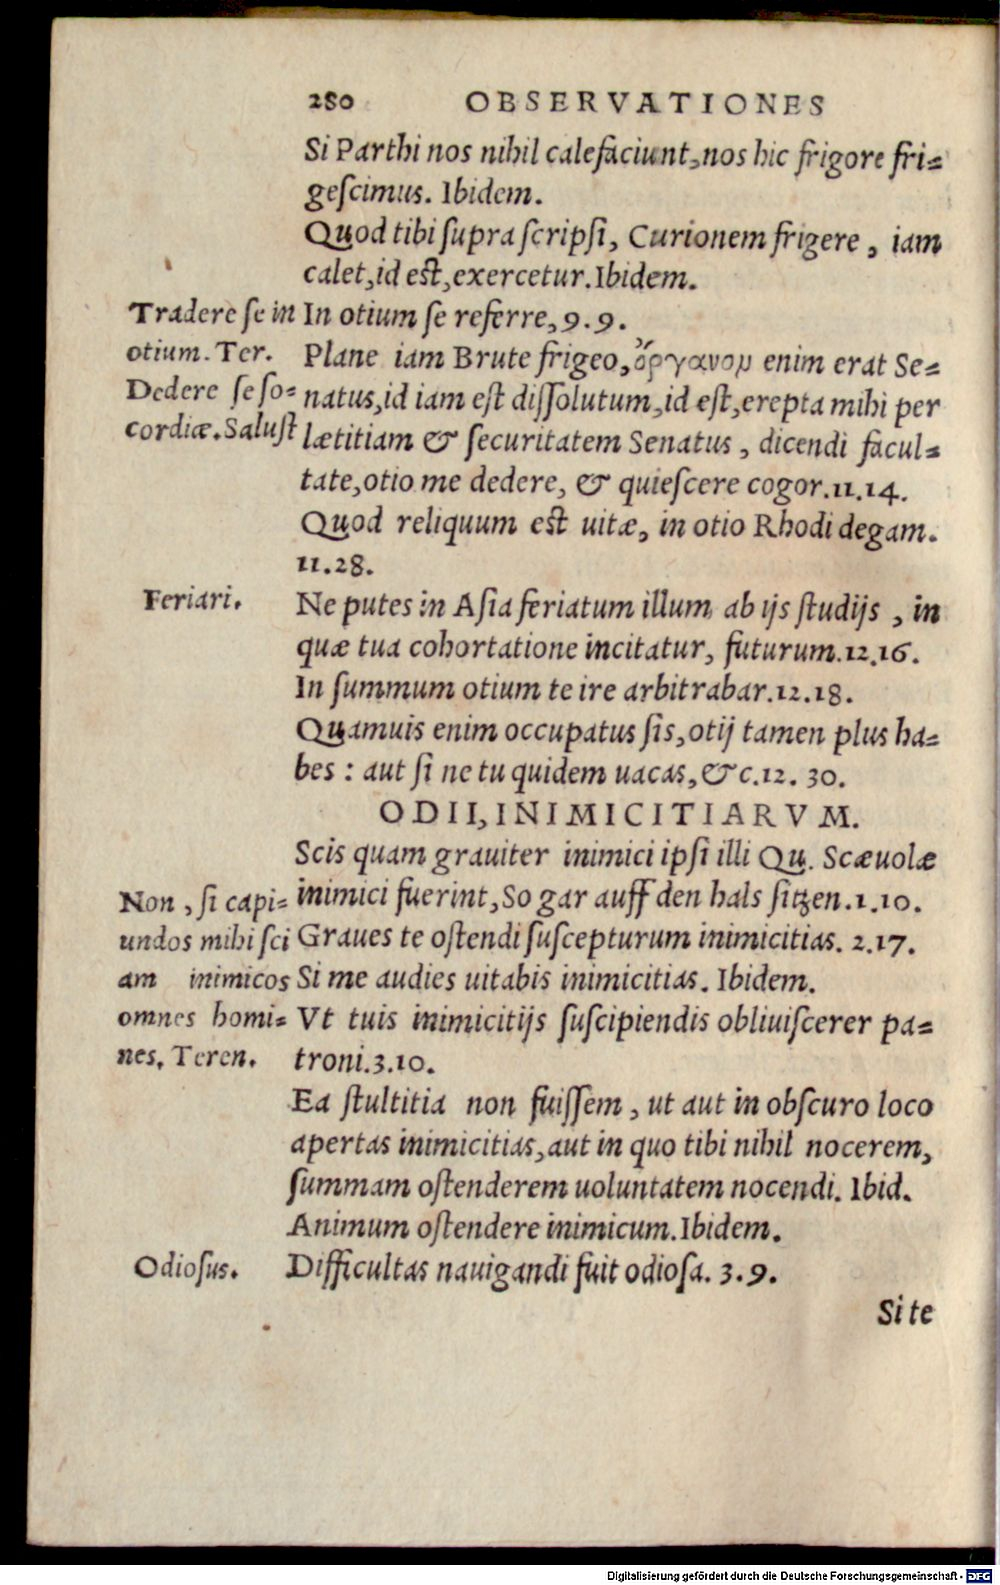 280 OBSERVATIONES
Si Parthi nos nihil calefaciunt, nos hic frigore fri=
gescimus. Ibidem.
Quod tibi supra scripsi, Curionem frigere, iam
calet, id est, exercetur. Ibidem.
Tradere se in
otium. Ter.
Dedere se so=
cordiæ. Salust
In otium se referre, 9.9.
Plane iam Brute frigeo, ὄργανον enim erat Se=
natus, id iam est dissolutum, id est, erepta mihi per
lætitiam & securitatem Senatus, dicendi facul=
tate, otio me dedere, & quiescere cogor. 11.14.
Quod reliquum est uitæ, in otio Rhodi degam.
11.28.
Feriari.
Ne putes in Asia feriatum illum ab ijs studijs, in
quæ tua cohortatione incitatur, futurum. 12.16.
In summum otium te ire arbitrabar. 12.18.
Quamuis enim occupatus sis, otij tamen plus ha=
bes: aut si ne tu quidem uacas, &c. 12. 30.
ODII, INIMICITIARVM.
Scis quam grauiter inimici ipsi illi Qu. Scæuolæ
inimici fuerint, So gar auff den hals sitzen. 1.10.
Non, si capi=
undos mihi sci
am inimicos
omnes homi=
nes. Teren.
Graues te ostendi suscepturum inimicitias. 2.17.
Si me audies uitabis inimicitias. Ibidem.
Vt tuis inimicitijs suscipiendis obliuiscerer pa=
troni. 3.10.
Ea stultitia non fuissem, ut aut in obscuro loco
apertas inimicitias, aut in quo tibi nihil nocerem,
summam ostenderem uoluntatem nocendi. Ibid.
Animum ostendere inimicum. Ibidem.
Odiosus.
Difficultas nauigandi fuit odiosa. 3.9.
Si te
Digitalisierung gefördert durch die Deutsche Forschungsgemeinschaft - DFG